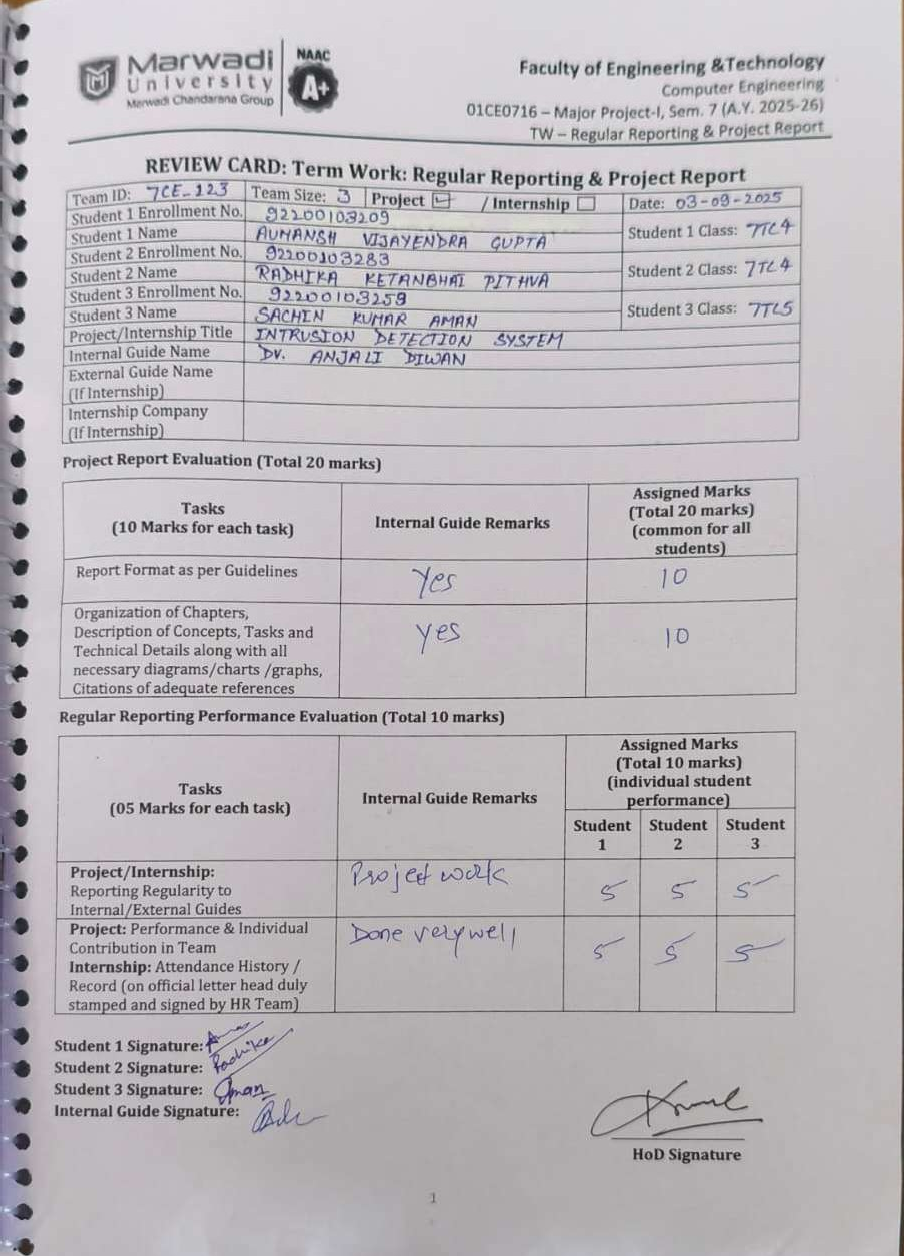 Marwadi
University
Marwadi Chandarana Group
NAAC
A+
Faculty of Engineering &Technology
Computer Engineering
01CE0716 – Major Project-I, Sem. 7 (A.Y. 2025-26)
TW – Regular Reporting & Project Report
REVIEW CARD: Term Work: Regular Reporting & Project Report
Team ID: 7CE-123 Team Size: 3 Project / Internship Date: 03-09-2025
Student 1 Enrollment No. 92200103209
Student 1 Name AUMANSH VIJAYENDRA GUPTA Student 1 Class: 7TC4
Student 2 Enrollment No. 92200103283
Student 2 Name RADHIKA KETANBHAI PITHVA Student 2 Class: 7TC4
Student 3 Enrollment No. 92200103259
Student 3 Name SACHIN KUMAR AMAN Student 3 Class: 7TC5
Project/Internship Title INTRUSION DETECTION SYSTEM
Internal Guide Name Dr. ANJALI DIWAN
External Guide Name
(If Internship)
Internship Company
(If Internship)
Project Report Evaluation (Total 20 marks)
Tasks
(10 Marks for each task)
Internal Guide Remarks
Assigned Marks
(Total 20 marks)
(common for all
students)
Report Format as per Guidelines Yes 10
Organization of Chapters,
Description of Concepts, Tasks and
Technical Details along with all
necessary diagrams/charts /graphs,
Citations of adequate references
yes 10
Regular Reporting Performance Evaluation (Total 10 marks)
Tasks
(05 Marks for each task)
Internal Guide Remarks
Assigned Marks
(Total 10 marks)
(individual student
performance)
Student
1
Student
2
Student
3
Project/Internship:
Reporting Regularity to
Internal/External Guides
Project work 5 5 5
Project: Performance & Individual
Contribution in Team
Internship: Attendance History /
Record (on official letter head duly
stamped and signed by HR Team)
Done very well 5 5 5
Student 1 Signature:
Student 2 Signature: Radhika
Student 3 Signature: Aman
Internal Guide Signature:
HoD Signature
1